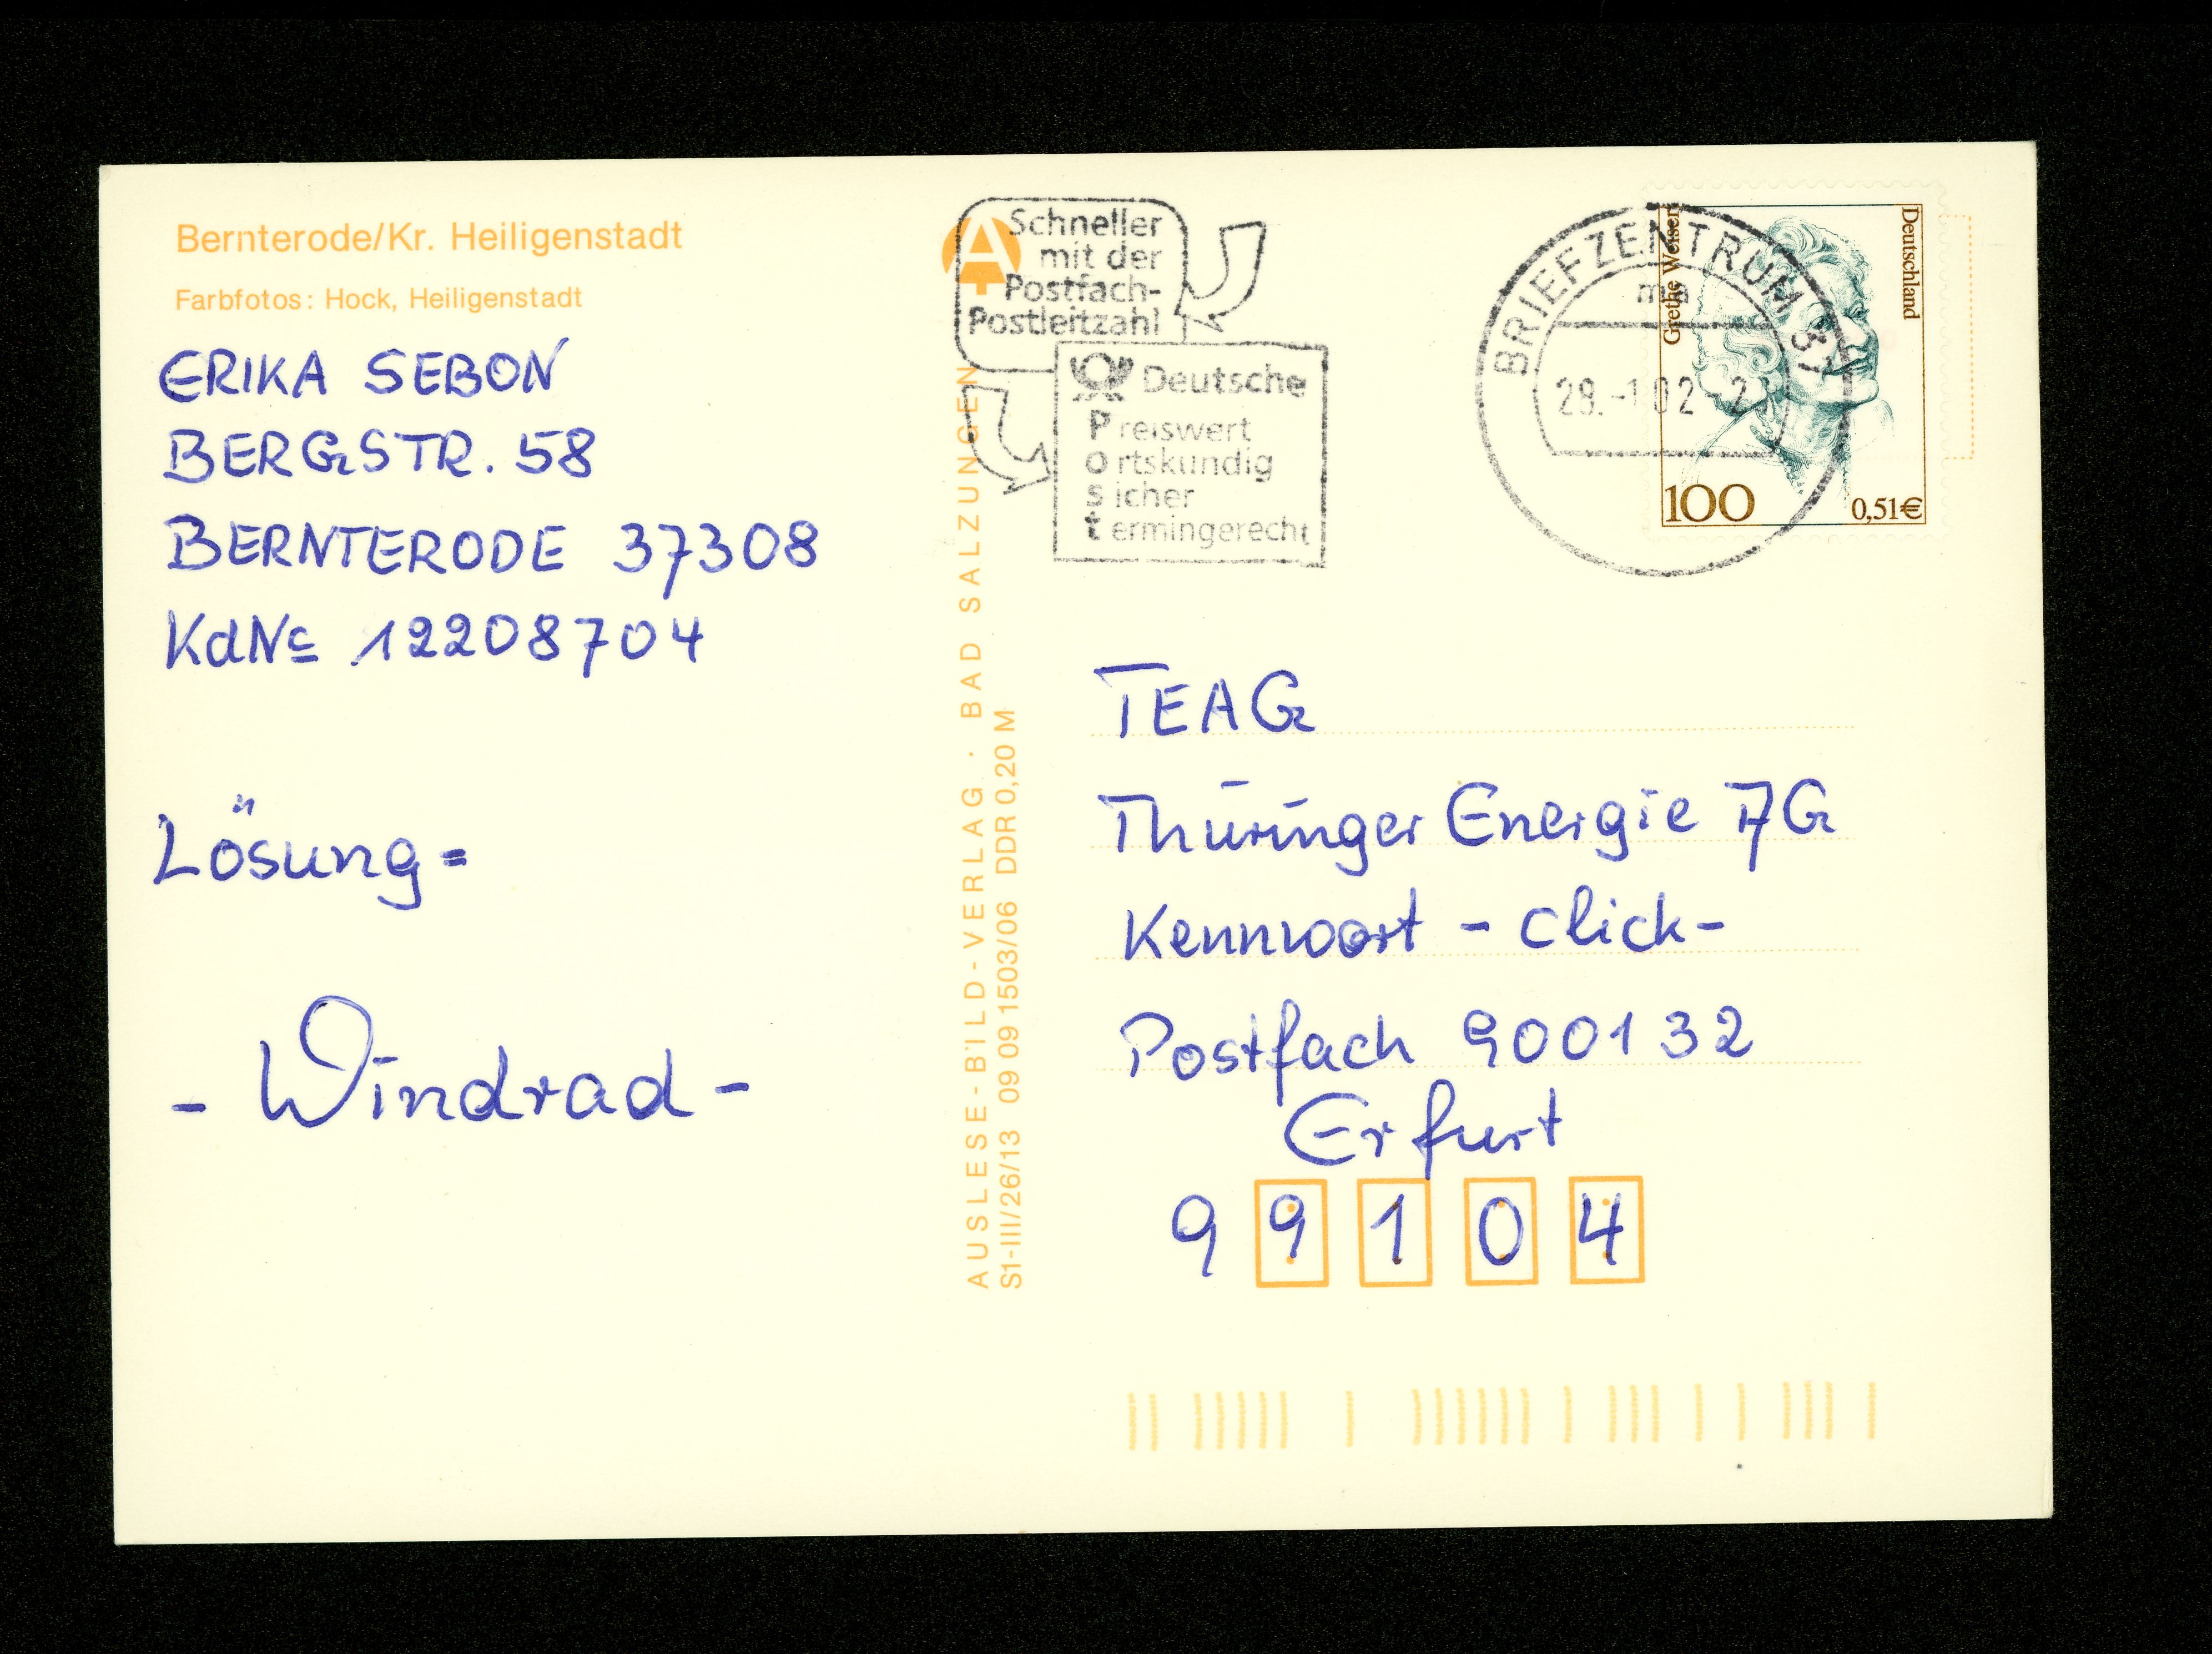 Bernterode/Kr. Heiligenstadt
Farbfotos: Hock, Heiligenstadt
ERIKA SEBON
BERGSTR. 58
BERNTERODE 37308
KdNr 12208704
Lösung =
- Windrad -
AUSLESE-BILD-VERLAG · BAD SALZUNGEN
S1-III/26/13 09 09 1503/06 DDR 0,20 M
A
Schneller
mit der
Postfach-
Postleitzahl
Deutsche
Preiswert
ortskundig
sicher
termingerecht
BRIEFZENTRUM 37
ma
29.-1.02-2
Grethe Weiser
Deutschland
100
0,51€
TEAG
Thüringer Energie AG
Kennwort - click-
Postfach 900132
Erfurt
99104